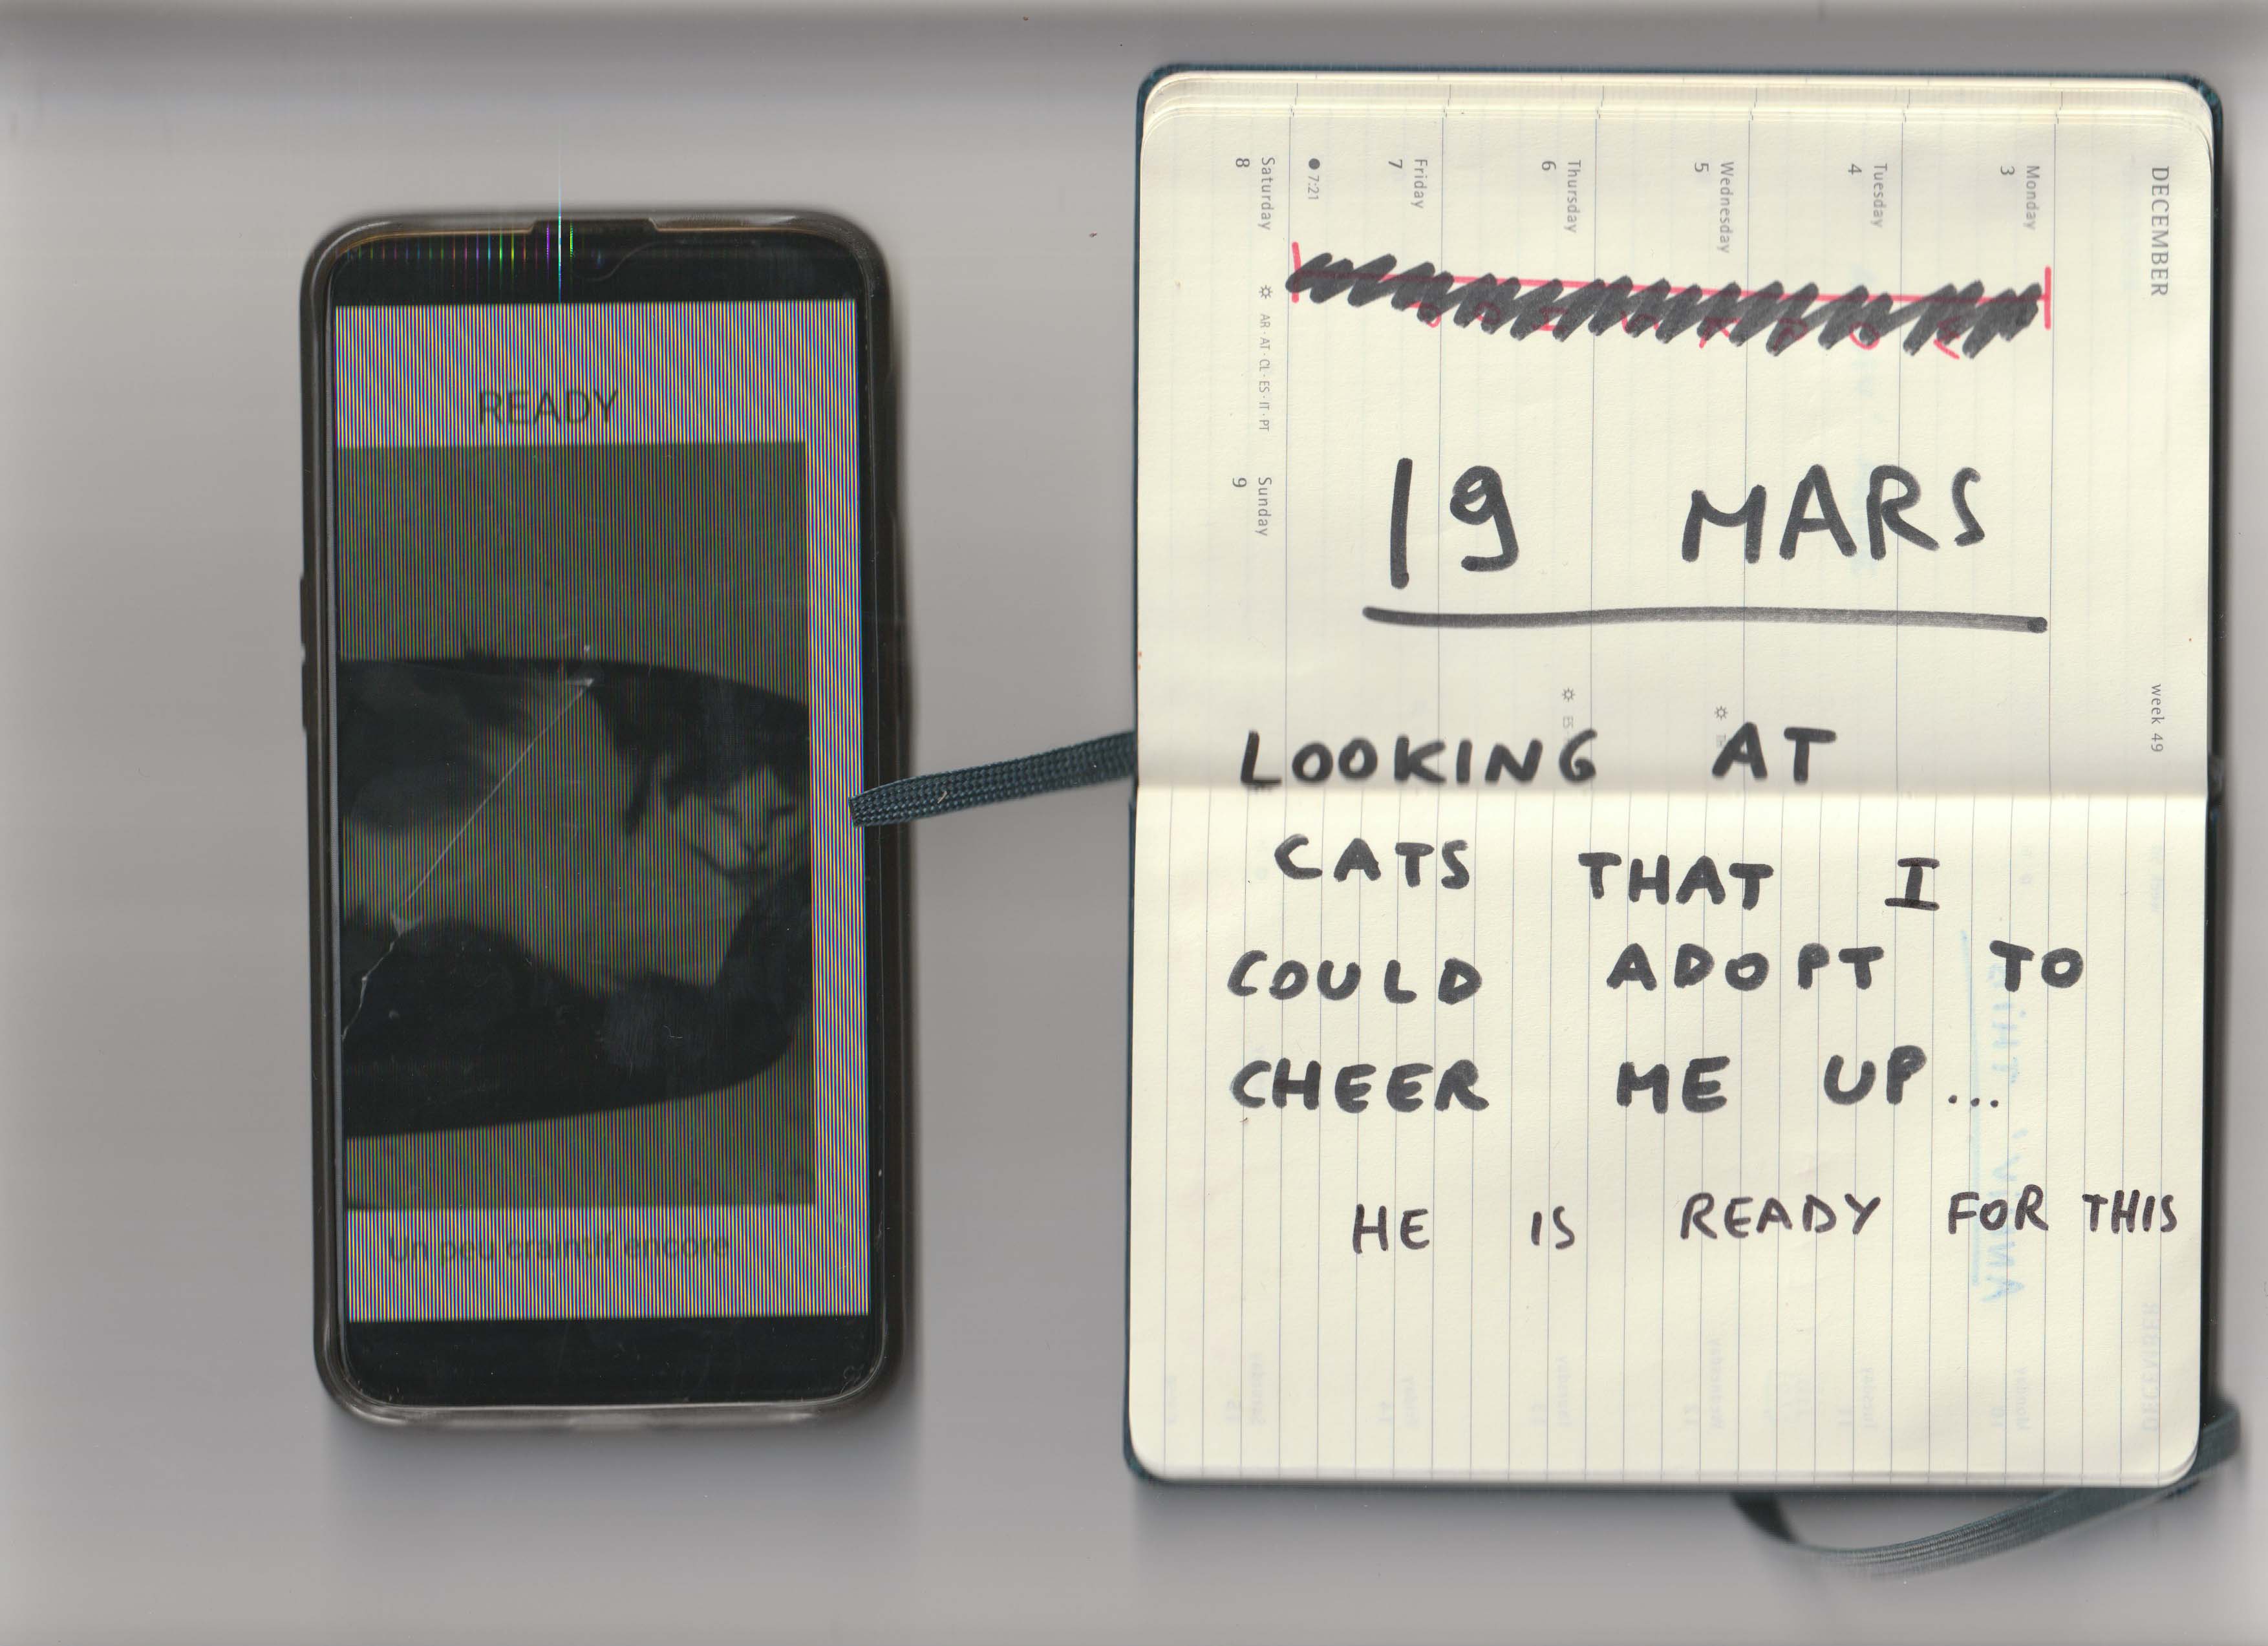 READY
Un peu craintif encore
DECEMBER
week 49
Monday
3
Tuesday
4
Wednesday
5
Thursday
6
Friday
7
7:21
Saturday
8
AR · AT · CL · ES · IT · PT
Sunday
9
19 MARS
LOOKING AT
CATS THAT I
COULD ADOPT TO
CHEER ME UP...
HE IS READY FOR THIS